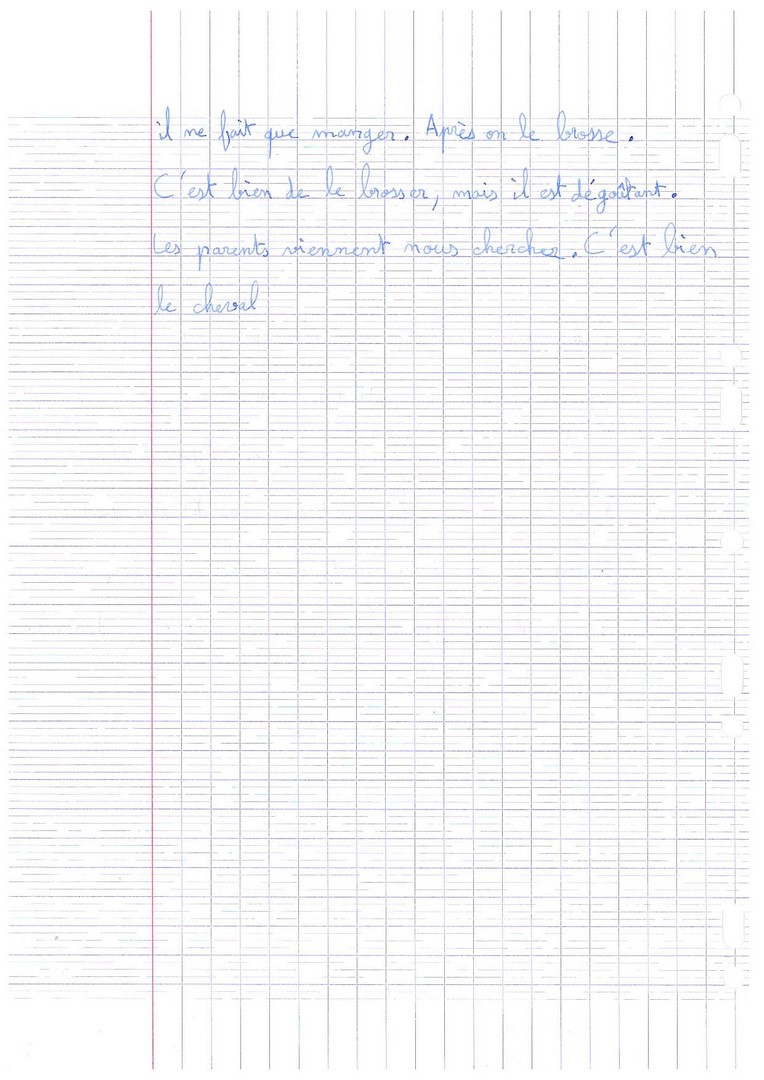 il ne fait que manger. Après on le brosse.
C'est bien de le brosser, mais il est dégoûtant.
Les parents viennent nous chercher. C'est bien
le cheval